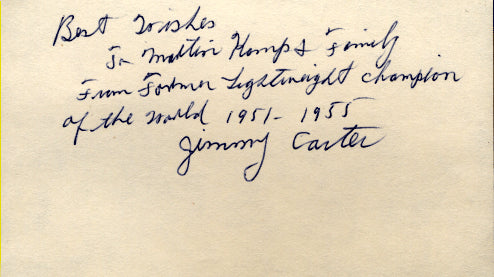 Best Wishes
To Martin Kemp & Family
From Former Lightweight Champion
of the World 1951-1955
Jimmy Carter